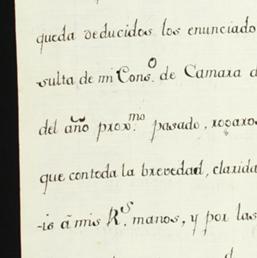 queda deducidas los enunciado
sulta de mi Cons.º de Camara d
del año prox.mo pasado, rogaros
que con toda la brevedad, clarida
-is â mis R.s manos, y por las